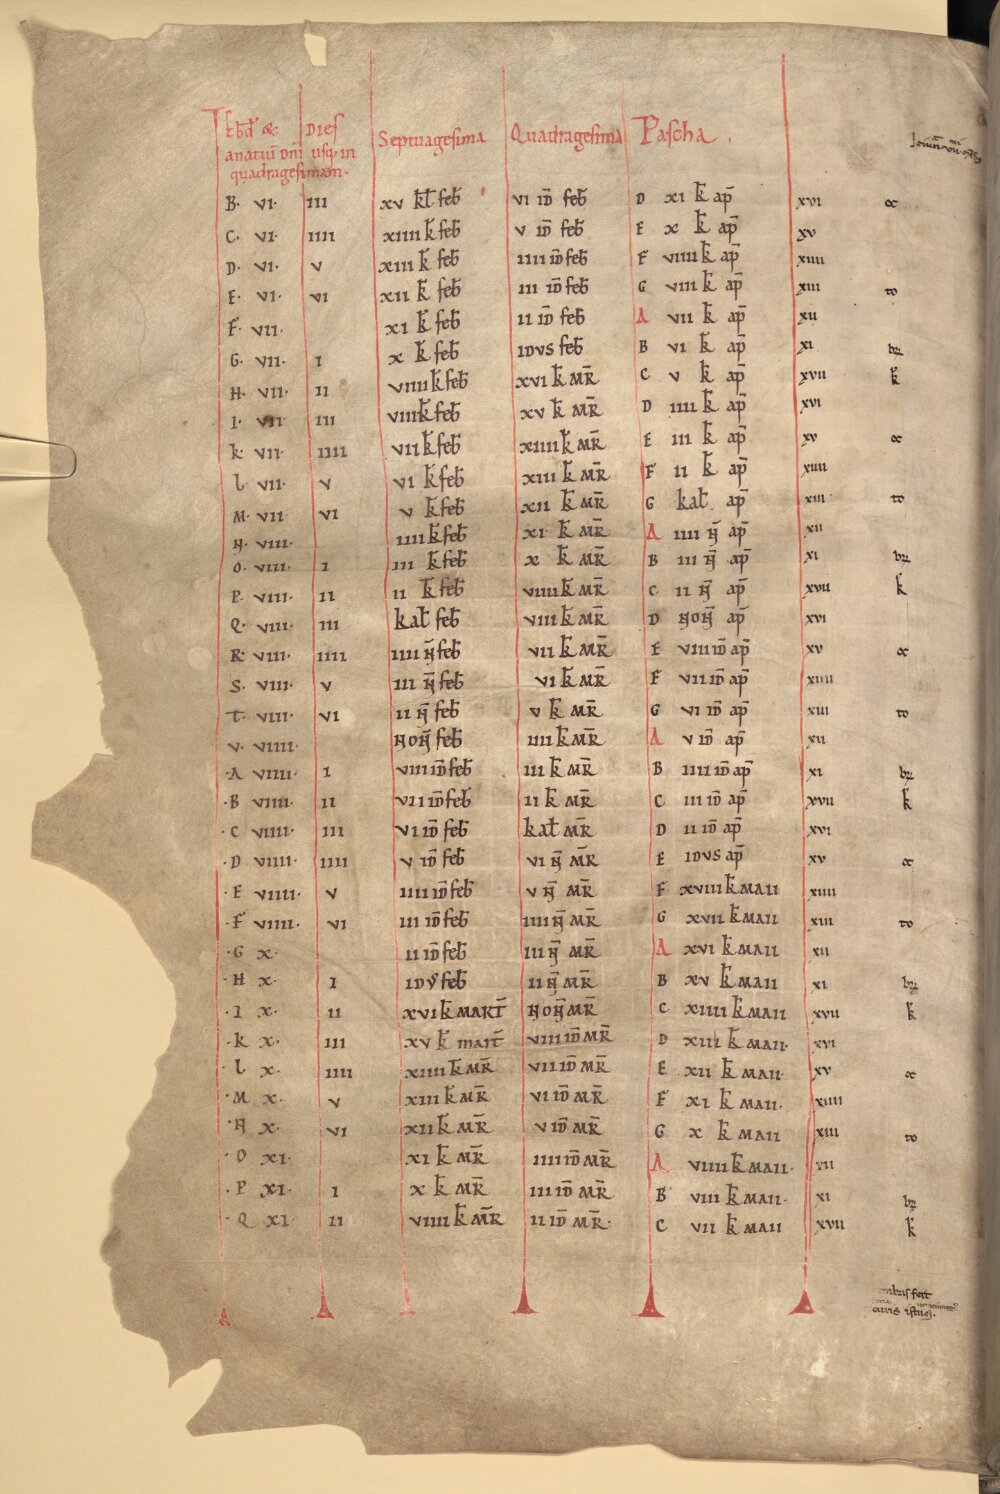 Ebd̄ & Dies Septuagesima Quadragesima Pascha .
anatiuī dn̄i usq; in
quadragesimam.
B· VI· III XV kl̄ feb̄ VI id̄ feb̄ D XI k̄ ap̄ XVI
C· VI· IIII XIIII k̄ feb̄ V id̄ feb̄ E X k̄ ap̄ XV
D· VI· V XIII k̄ feb̄ IIII id̄ feb̄ F VIIII k̄ ap̄ XIIII
E· VI· VI XII k̄ feb̄ III id̄ feb̄ G VIII k̄ ap̄ XIII
F· VII· XI k̄ feb̄ II id̄ feb̄ A VII k̄ ap̄ XII
G· VII· I X k̄ feb̄ idus feb̄ B VI k̄ ap̄ XI
H· VII· II VIIII k̄ feb̄ XVI k̄ mr̄ C V k̄ ap̄ XVII k̄
I· VII III VIII k̄ feb̄ XV k̄ mr̄ D IIII k̄ ap̄ XVI
k· VII· IIII VII k̄ feb̄ XIIII k̄ mr̄ E III k̄ ap̄ XV
l VII· V VI k̄ feb̄ XIII k̄ mr̄ F II k̄ ap̄ XIIII
M· VII VI V k̄ feb̄ XII k̄ mr̄ G kal̄ ap̄ XIII
N· VIII· IIII k̄ feb̄ XI k̄ mr̄ A IIII n̄ ap̄ XII
O· VIII· I III k̄ feb̄ X k̄ mr̄ B III n̄ ap̄ XI
P· VIII· II II k̄ feb̄ VIIII k̄ mr̄ C II n̄ ap̄ XVII k̄
Q· VIII· III kal̄ feb̄ VIII k̄ mr̄ D non̄ ap̄ XVI
R· VIII· IIII IIII n̄ feb̄ VII k̄ mr̄ E VIII id̄ ap̄ XV
S· VIII· V III n̄ feb̄ VI k̄ mr̄ F VII id̄ ap̄ XIIII
t· VIII· VI II n̄ feb̄ V k̄ mr̄ G VI id̄ ap̄ XIII
v· VIIII· non̄ feb̄ IIII k̄ mr̄ A V id̄ ap̄ XII
·A VIIII· I VIII id̄ feb̄ III k̄ mr̄ B IIII id̄ ap̄ XI
·B VIIII· II VII id̄ feb̄ II k̄ mr̄ C III id̄ ap̄ XVII k̄
·C VIIII· III VI id̄ feb̄ kal̄ mr̄ D II id̄ ap̄ XVI
·D VIIII· IIII V id̄ feb̄ VI n̄ mr̄ E idus ap̄ XV
·E VIIII· V IIII id̄ feb̄ V n̄ mr̄ F XVIII k̄ maii XIIII
·F VIIII· VI III id̄ feb̄ IIII n̄ mr̄ G XVII k̄ maii XIII
·G X· II id̄ feb̄ III n̄ mr̄ A XVI k̄ maii XII
·H X· I idus feb̄ II n̄ mr̄ B XV k̄ maii XI
·I X· II XVI k̄ mart̄ non̄ mr̄ C XIIII k̄ maii XVII k̄
·k X· III XV k̄ mart̄ VIII id̄ mr̄ D XIII k̄ maii· XVI
·l X· IIII XIIII k̄ mr̄ VII id̄ mr̄ E XII k̄ maii· XV
·M X· V XIII k̄ mr̄ VI id̄ mr̄ F XI k̄ maii· XIIII
·N X· VI XII k̄ mr̄ V id̄ mr̄ G X k̄ maii XIII
·O XI· XI k̄ mr̄ IIII id̄ mr̄ A VIIII k̄ maii· XII
·P XI· I X k̄ mr̄ III id̄ mr̄ B VIII k̄ maii· XI
·Q XI· II VIIII k̄ mr̄ II id̄ mr̄· C VII k̄ maii XVII k̄